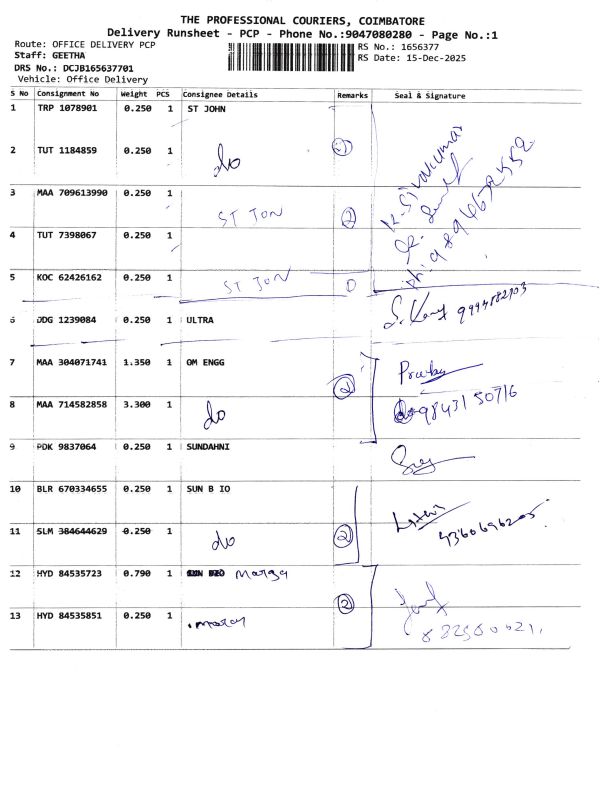 THE PROFESSIONAL COURIERS, COIMBATORE
Delivery Runsheet - PCP - Phone No.:9047080280 - Page No.:1
Route: OFFICE DELIVERY PCP RS No.: 1656377
Staff: GEETHA RS Date: 15-Dec-2025
DRS No.: DCJB165637701
Vehicle: Office Delivery
S No Consignment No Weight PCS Consignee Details Remarks Seal & Signature
1 TRP 1078901 0.250 1 ST JOHN
2 TUT 1184859 0.250 1 do
3 MAA 709613990 0.250 1 ST JON 2
K. Sivakumar
4 TUT 7398067 0.250 1
5 KOC 62426162 0.250 1 ST JON
6 DDG 1239084 0.250 1 ULTRA
7 MAA 304071741 1.350 1 OM ENGG 2
8 MAA 714582858 3.300 1 do 9843150716
9 PDK 9837064 0.250 1 SUNDAHNI
10 BLR 670334655 0.250 1 SUN B IO
11 SLM 384644629 0.250 1 do 2
12 HYD 84535723 0.790 1 Marga 2
13 HYD 84535851 0.250 1